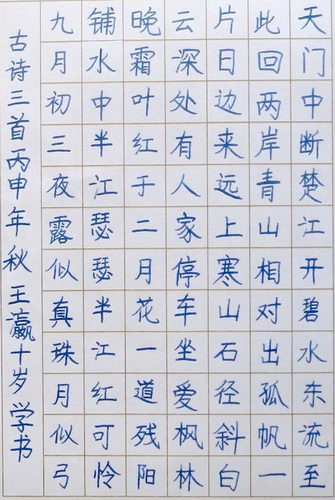 天门中断楚江开碧水东流至
此回两岸青山相对出孤帆一
片日边来远上寒山石径斜白
云深处有人家停车坐爱枫林
晚霜叶红于二月花一道残阳
铺水中半江瑟瑟半江红可怜
九月初三夜露似真珠月似弓
古诗三首丙申年秋王瀛十岁学书